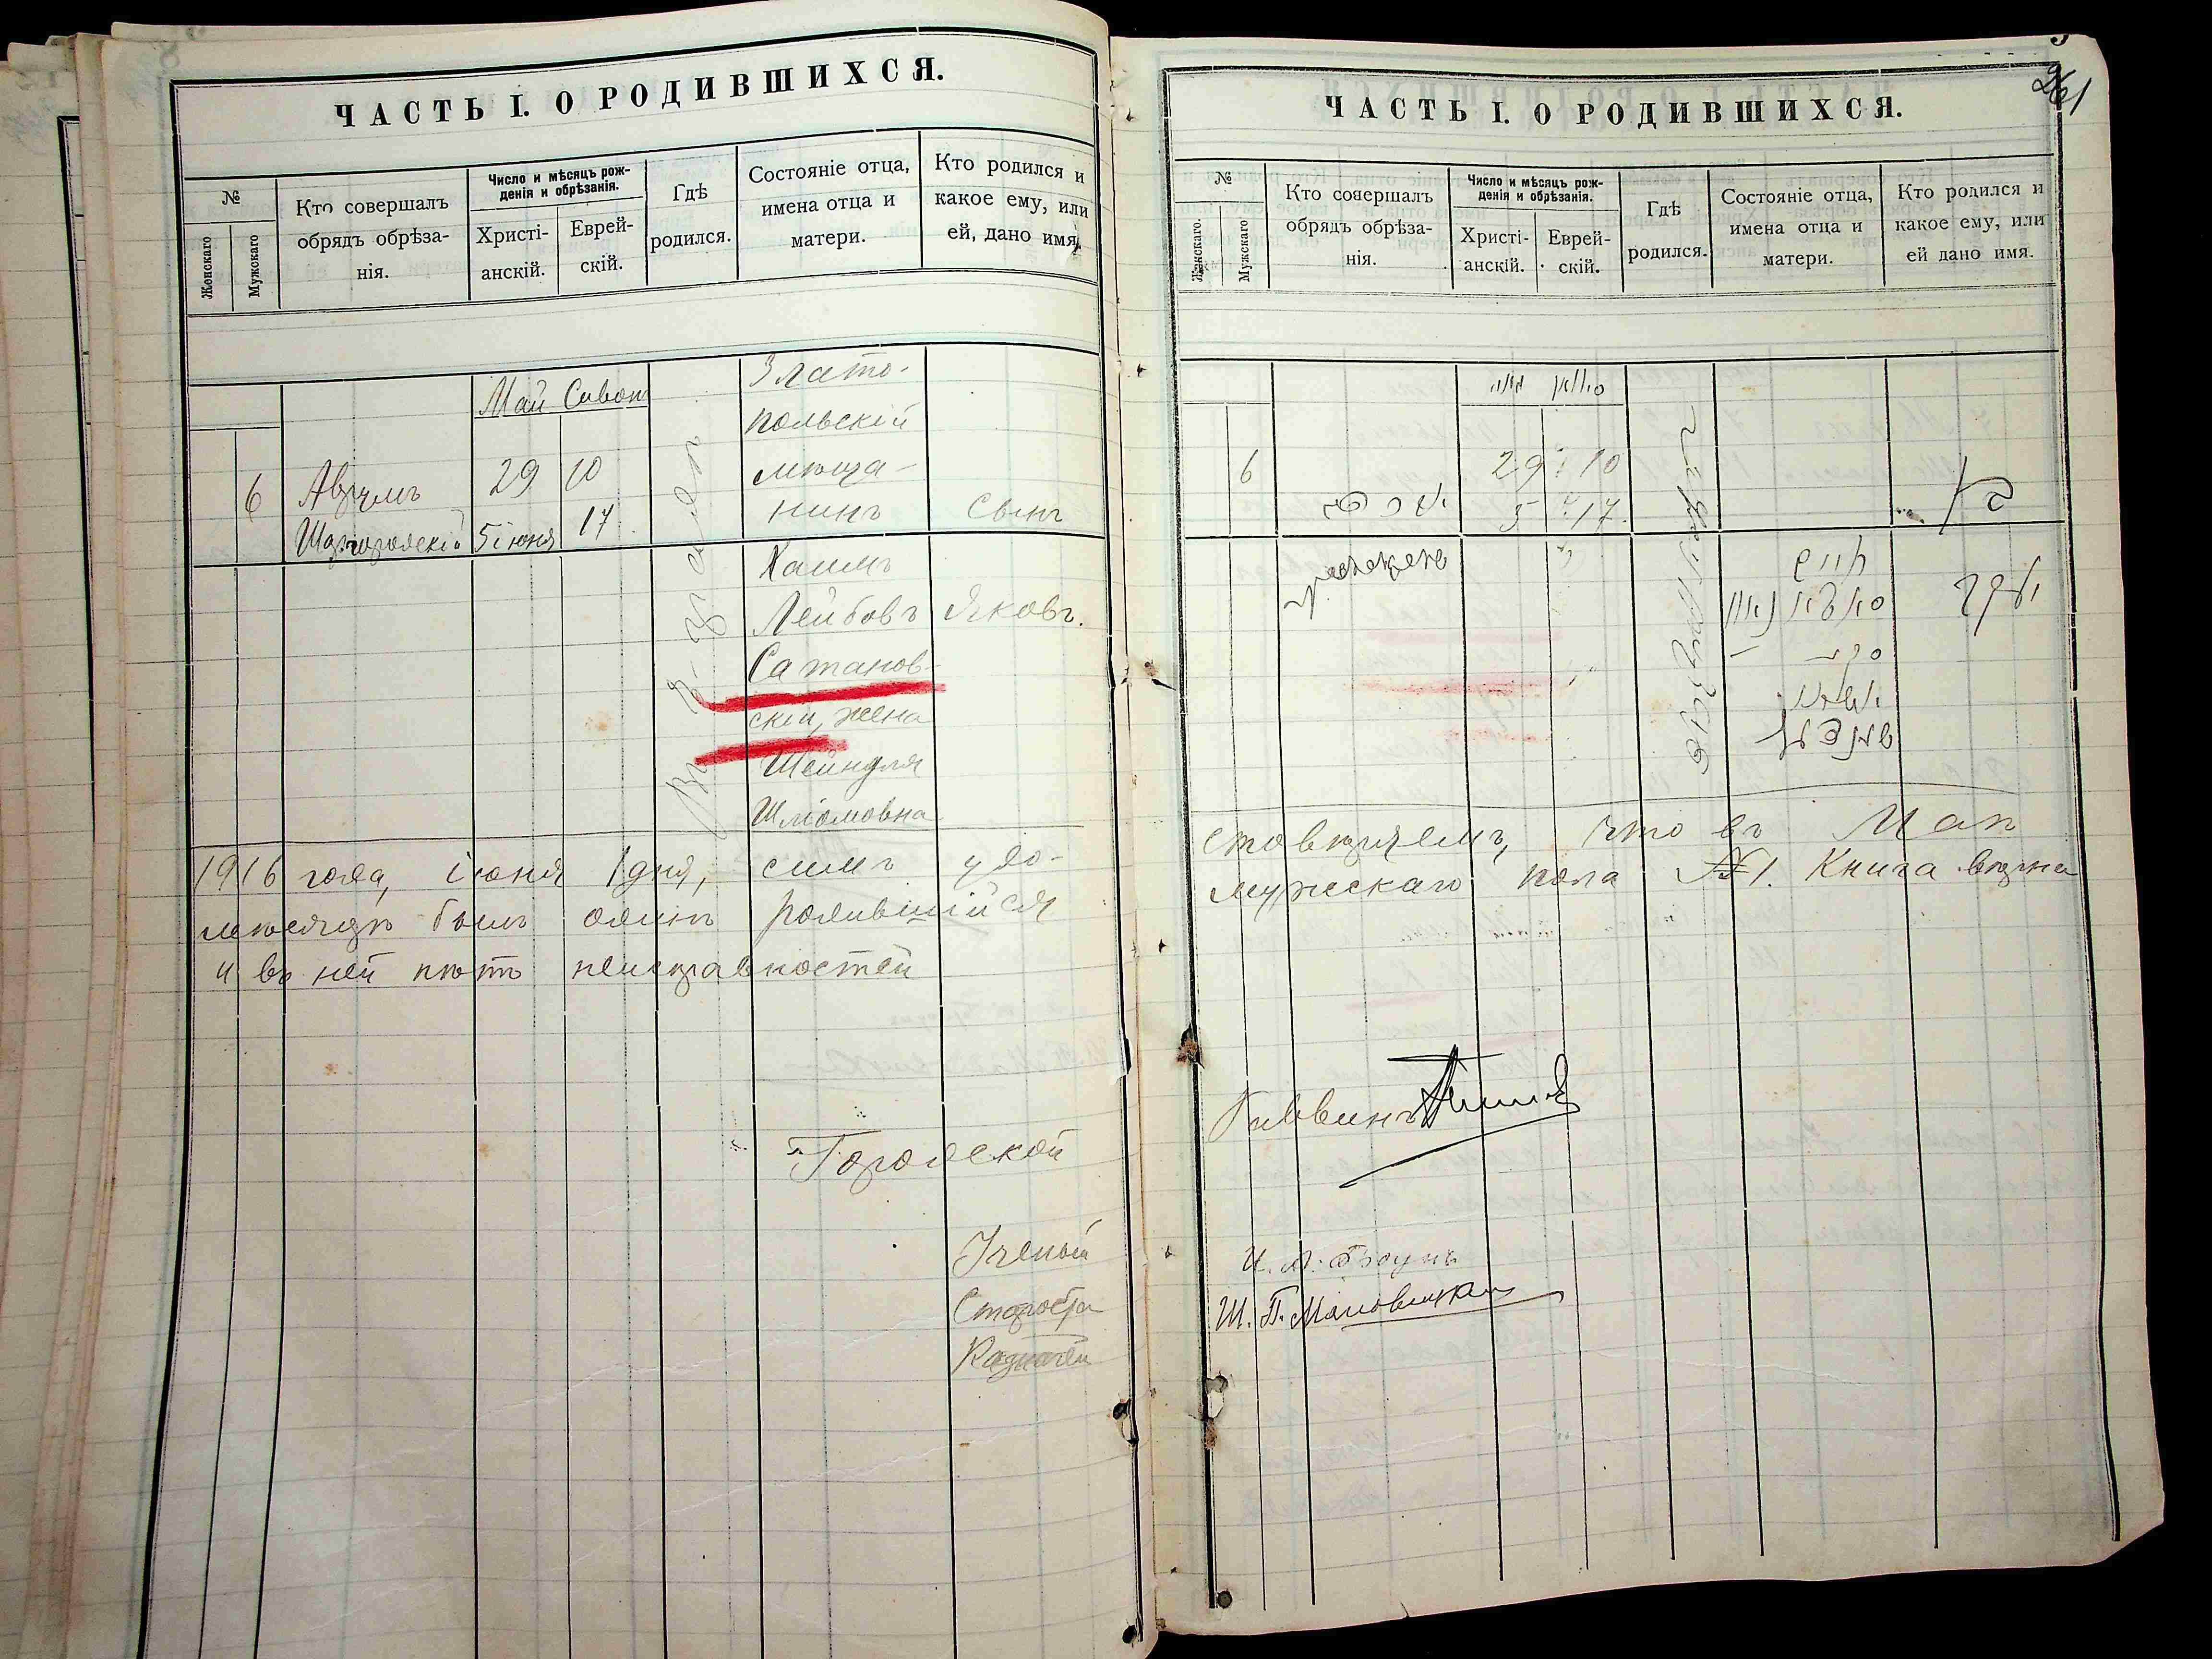 ЧАСТЬ I. О РОДИВШИХСЯ.
№
Женскаго
Мужскаго
Кто совершалъ
обрядъ обрѣза-
нія.
Число и мѣсяцъ рож-
денія и обрѣзанія.
Христі-
анскій.
Еврей-
скій.
Гдѣ
родился.
Состояніе отца,
имена отца и
матери.
Кто родился и
какое ему, или
ей, дано имя.
Май Сивон
6
Аврумъ
Шаргородскій
29 10
5 іюня 17
Злато-
польскій
мѣща-
нинъ
Хаимъ
Лейбовъ
Сатанов-
скій, жена
Шейндля
Шліомовна
Сынъ
Яковъ.
1916 года, іюня 1 дня, симъ удо-
мѣсяцѣ былъ одинъ родившійся
и въ ней нѣтъ неисправностей
Городской
Ученый
Староста
Казначей
ЧАСТЬ I. О РОДИВШИХСЯ.
261
№
Женскаго.
Мужскаго
Кто совершалъ
обрядъ обрѣза-
нія.
Число и мѣсяцъ рож-
денія и обрѣзанія.
Христі-
анскій.
Еврей-
скій.
Гдѣ
родился.
Состояніе отца,
имена отца и
матери.
Кто родился и
какое ему, или
ей дано имя.
6
29 10
5 17
בן
חיים
יעקב
стовѣряемъ, что въ Маѣ
мужскаго пола №1. Книга вѣрна
Раввинъ
Ш. П.